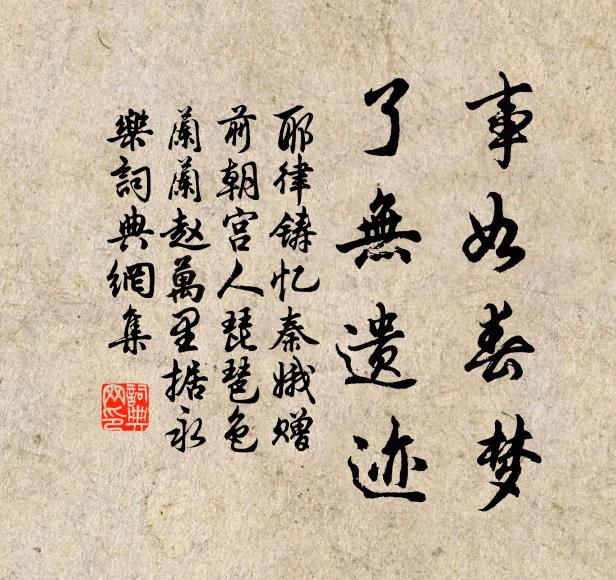 事如春梦
了無遗迹
耶律铸忆秦娥赠
前朝宫人琵琶色
蘭蘭赵萬里据永
樂詞典網集
詞典
网印